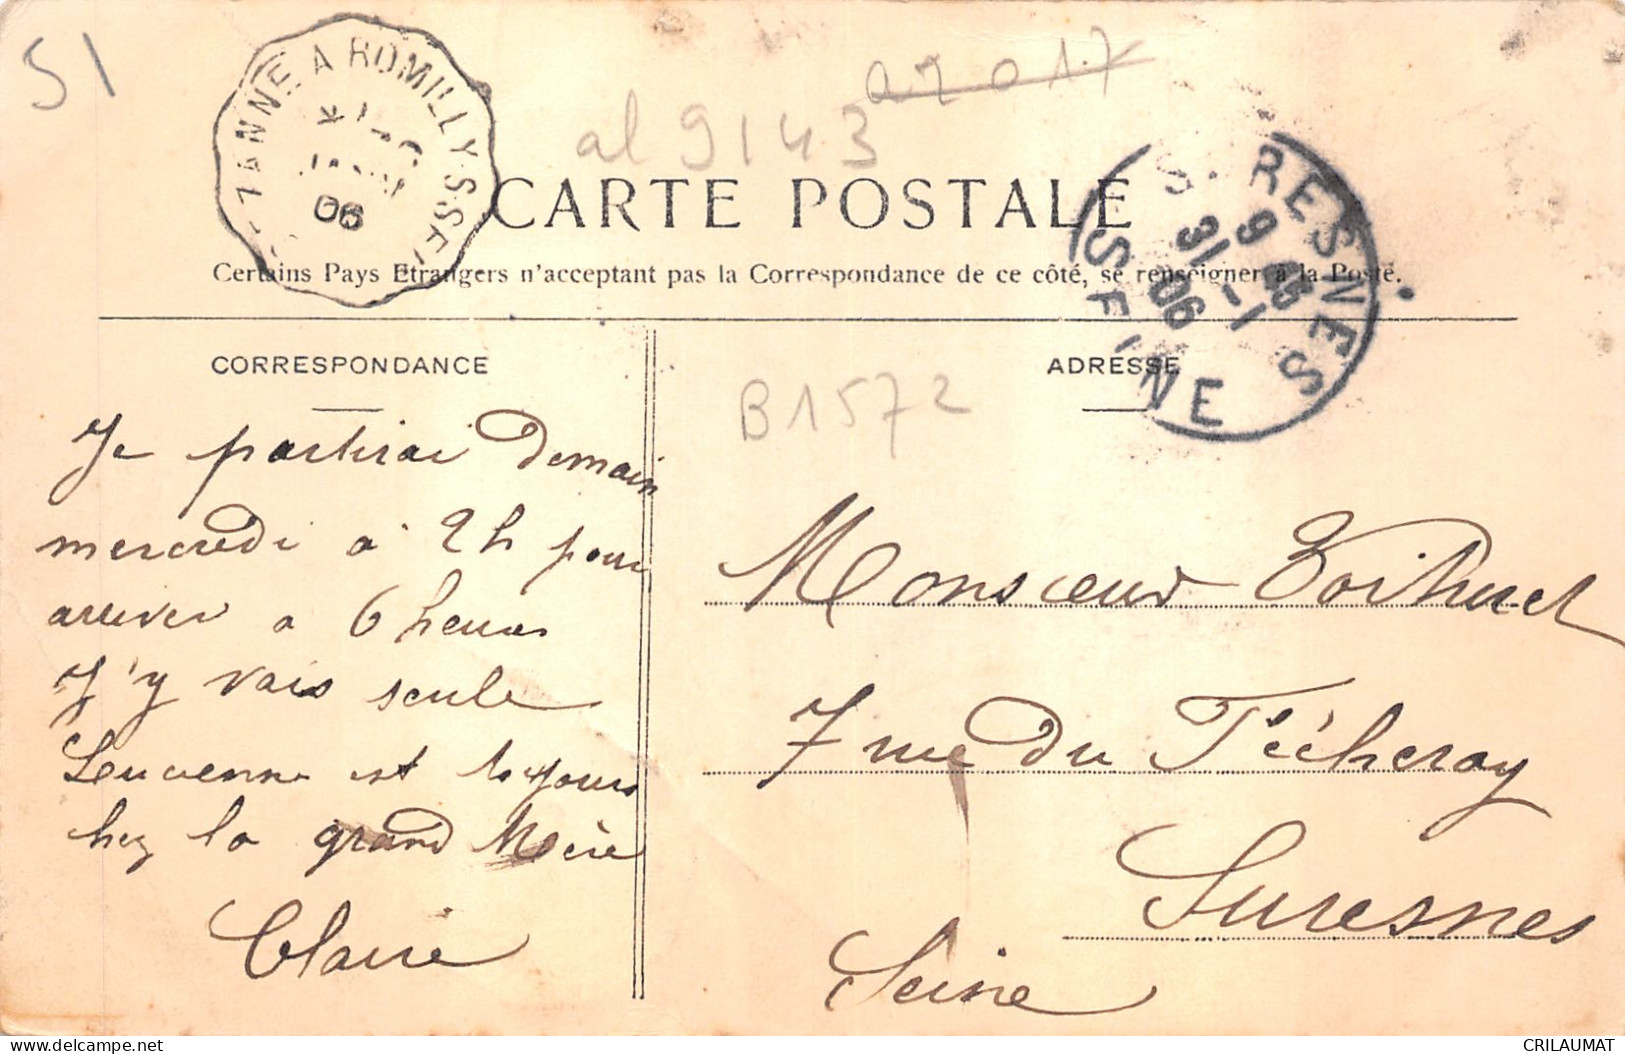 51
ZANNE A ROMILLY-S-SEI
06
a2017
al 9143
CARTE POSTALE
SURESNES
9 15
31 -1
06
SEINE
Certains Pays Etrangers n'acceptant pas la Correspondance de ce côté, se renseigner à la Poste.
CORRESPONDANCE
Je partirai Demain
mercredi à 2 h pour
arriver a 6 heures
J'y vais seule
est toujours
chez la grand Mère
Claire
ADRESSE
B1572
Monsieur
7 rue du Técheray
Suresnes
Seine
CRILAUMAT